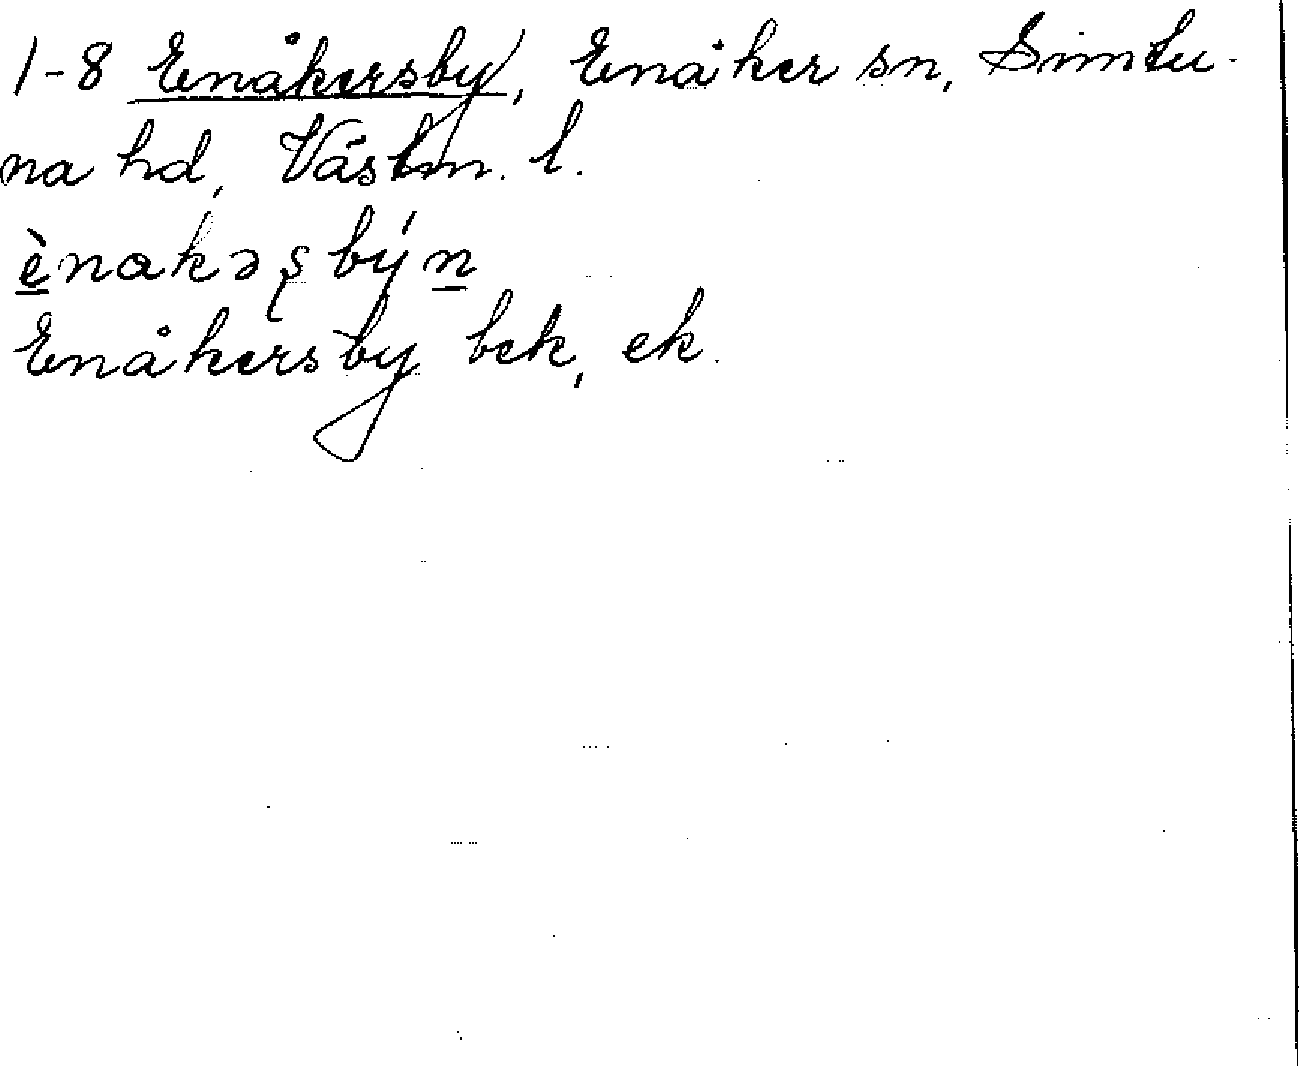 1-8 Enåkersby, Enåker sn, Simtu-
na hd, Västm. l.
ènakəʂbýn
Enåkersby bek, ek.